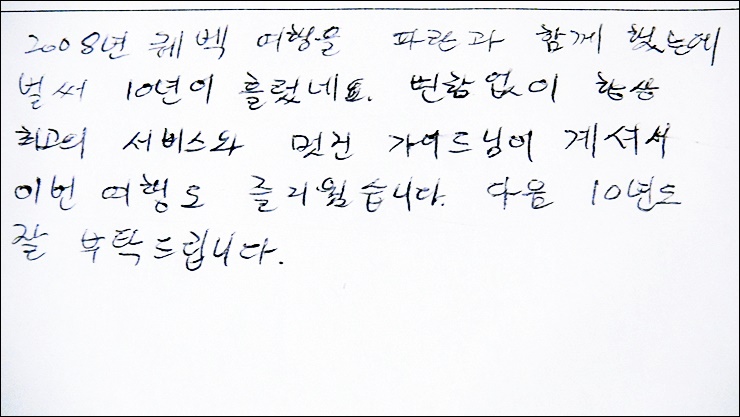 2008년 퀘벡 여행을 파란과 함께 했는데
벌써 10년이 흘렀네요. 변함없이 항상
최고의 서비스와 멋진 가이드님이 계셔서
이번 여행도 즐거웠습니다. 다음 10년도
잘 부탁드립니다.